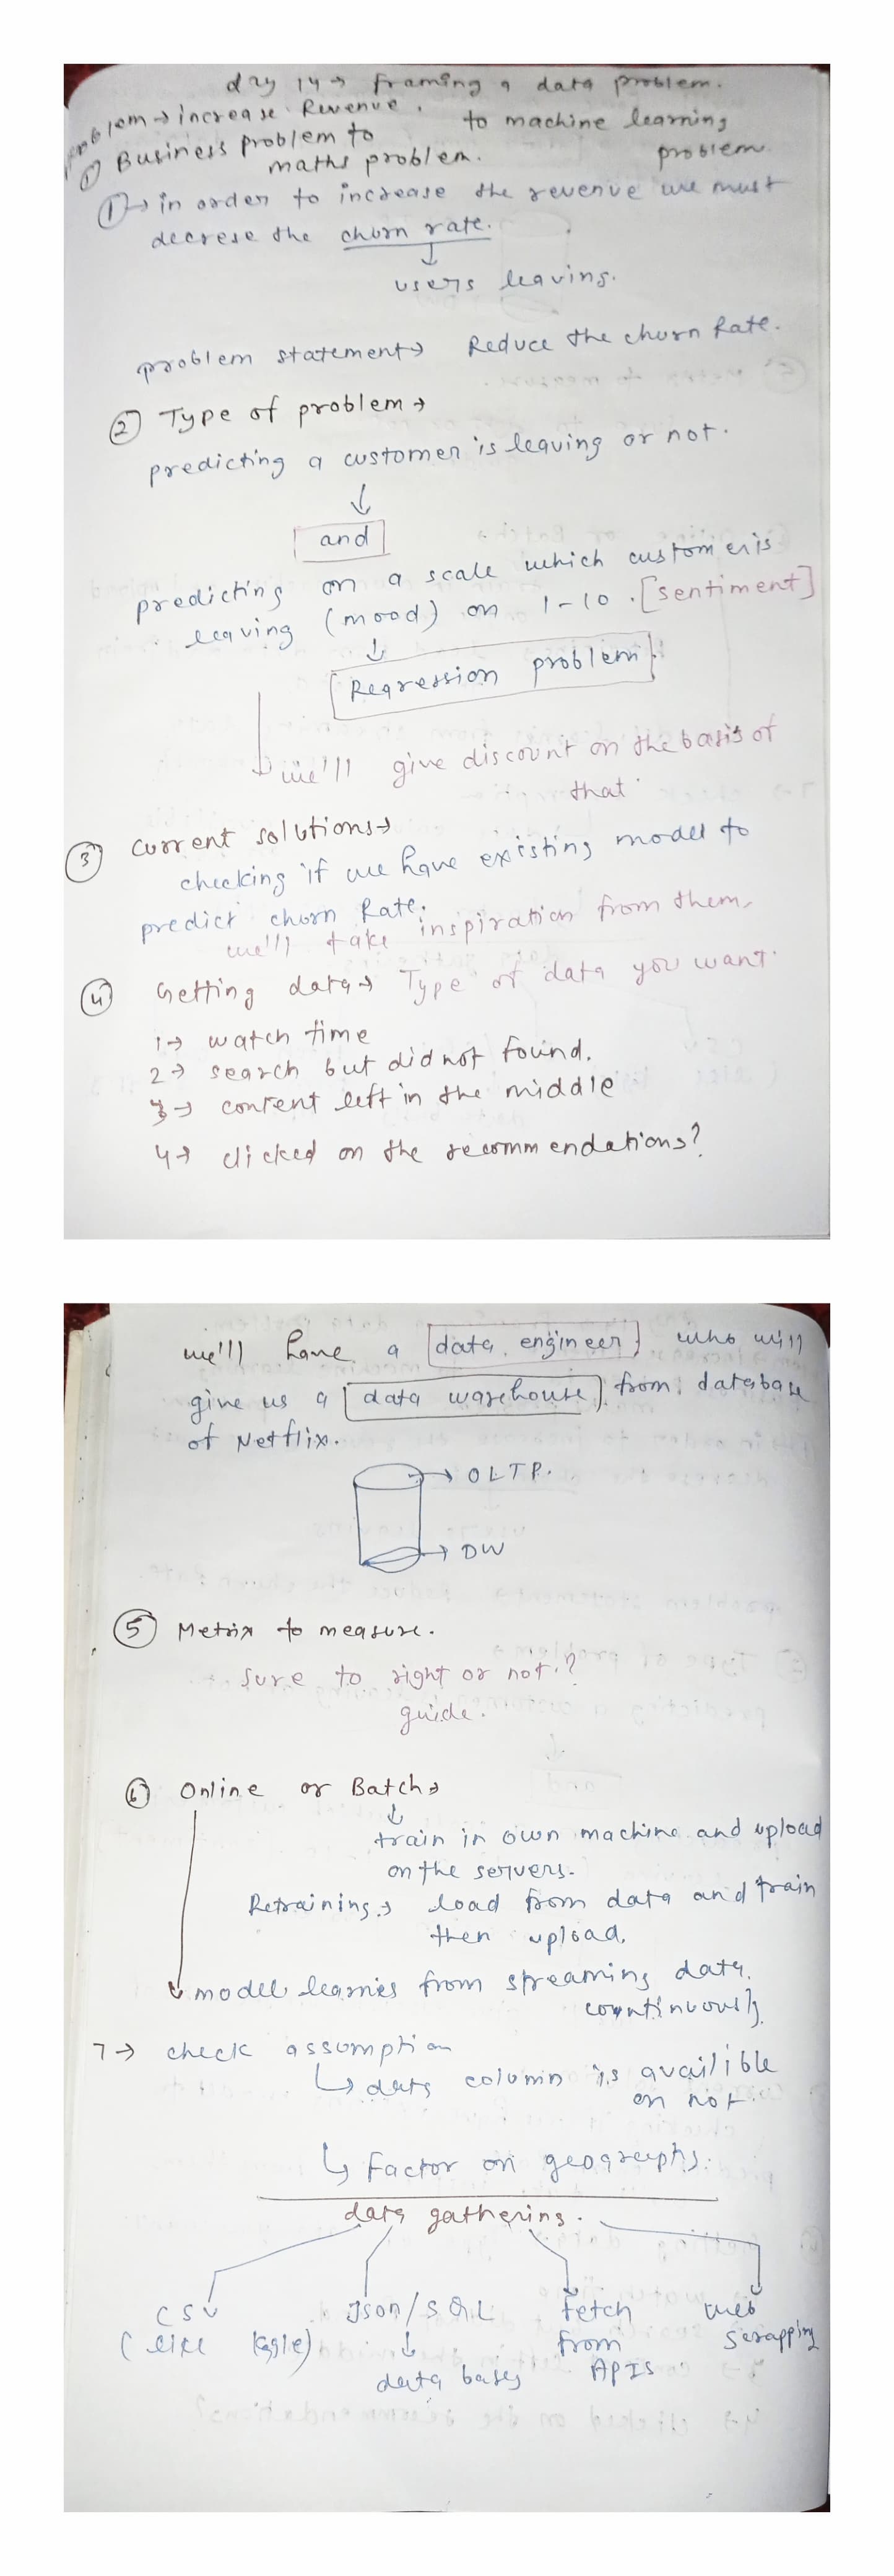 day 14 → framing a data problem.
to machine learning
problem.
problem → increase Revenue.
① Business problem to
maths problem.
① → in order to increase the revenue we must
decrese the churn rate.
↓
users leaving.
problem statement → Reduce the churn Rate.
② Type of problem →
predicting a customer is leaving or not.
↓
and
predicting on a scale which customer is
leaving (mood) on 1-10. [sentiment]
↓
Regression problem.
we'll give discount on the basis of
that
③ current solutions →
checking if we have existing model to
predict churn Rate.
we'll take inspiration from them.
④ Getting data → Type of data you want.
1 → watch time
2 → search but did not found.
3 → content left in the middle
4 → clicked on the recommendations?
we'll have a [data engineer] who will
give us a [data warehouse] from database
of Netflix.
→ OLTP.
→ DW
⑤ Metrix to measure.
Sure to right or not.?
guide.
⑥ Online or Batch →
↓
train in own machine and upload
on the servers.
Retraining → load from data and train
then upload.
model learnes from streaming data.
countinuously
7 → check assumption
↳ data column is availible
or not.
↳ Factor on geography.
data gathering.
CSV Json/SQL Fetch web
(like kagle) ↓ from scrapping
data bases APIs